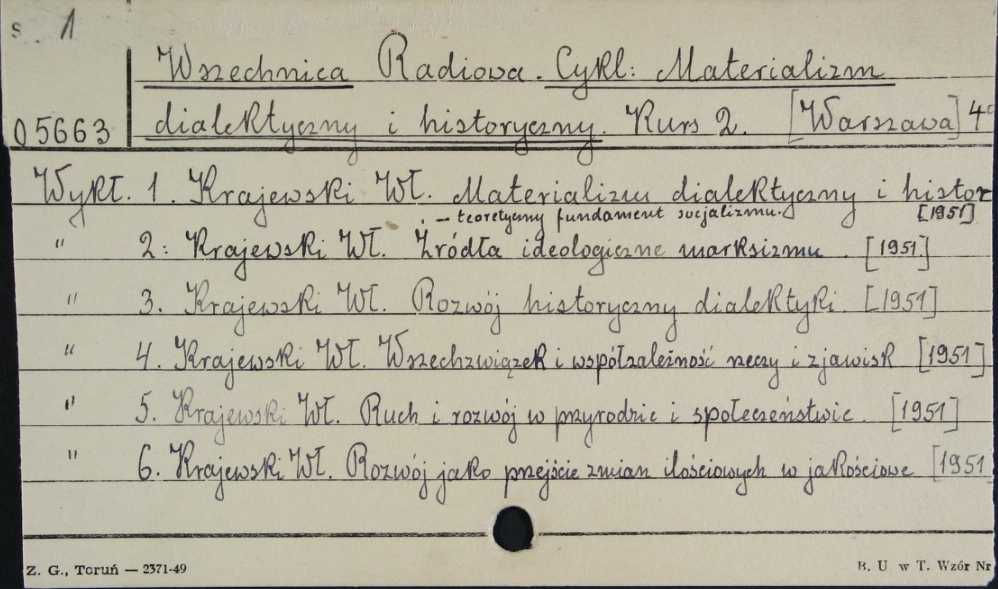 s. 1
Wszechnica Radiowa. Cykl: Materializm
05663 dialektyczny i historyczny. Kurs 2. [Warszawa] 4°
Wykł. 1. Krajewski Wł. Materializm dialektyczny i histor
. – teoretyczny fundament socjalizmu. [1951]
" 2: Krajewski Wł. Źródła ideologiczne marksizmu. [1951]
" 3. Krajewski Wł. Rozwój historyczny dialektyki. [1951]
" 4. Krajewski Wł. Wszechzwiązek i współzależność rzeczy i zjawisk [1951]
" 5. Krajewski Wł. Ruch i rozwój w przyrodzie i społeczeństwie. [1951]
" 6. Krajewski Wł. Rozwój jako przejście zmian ilościowych w jakościowe [1951
Z. G., Toruń — 2371-49 B. U w T. Wzór Nr